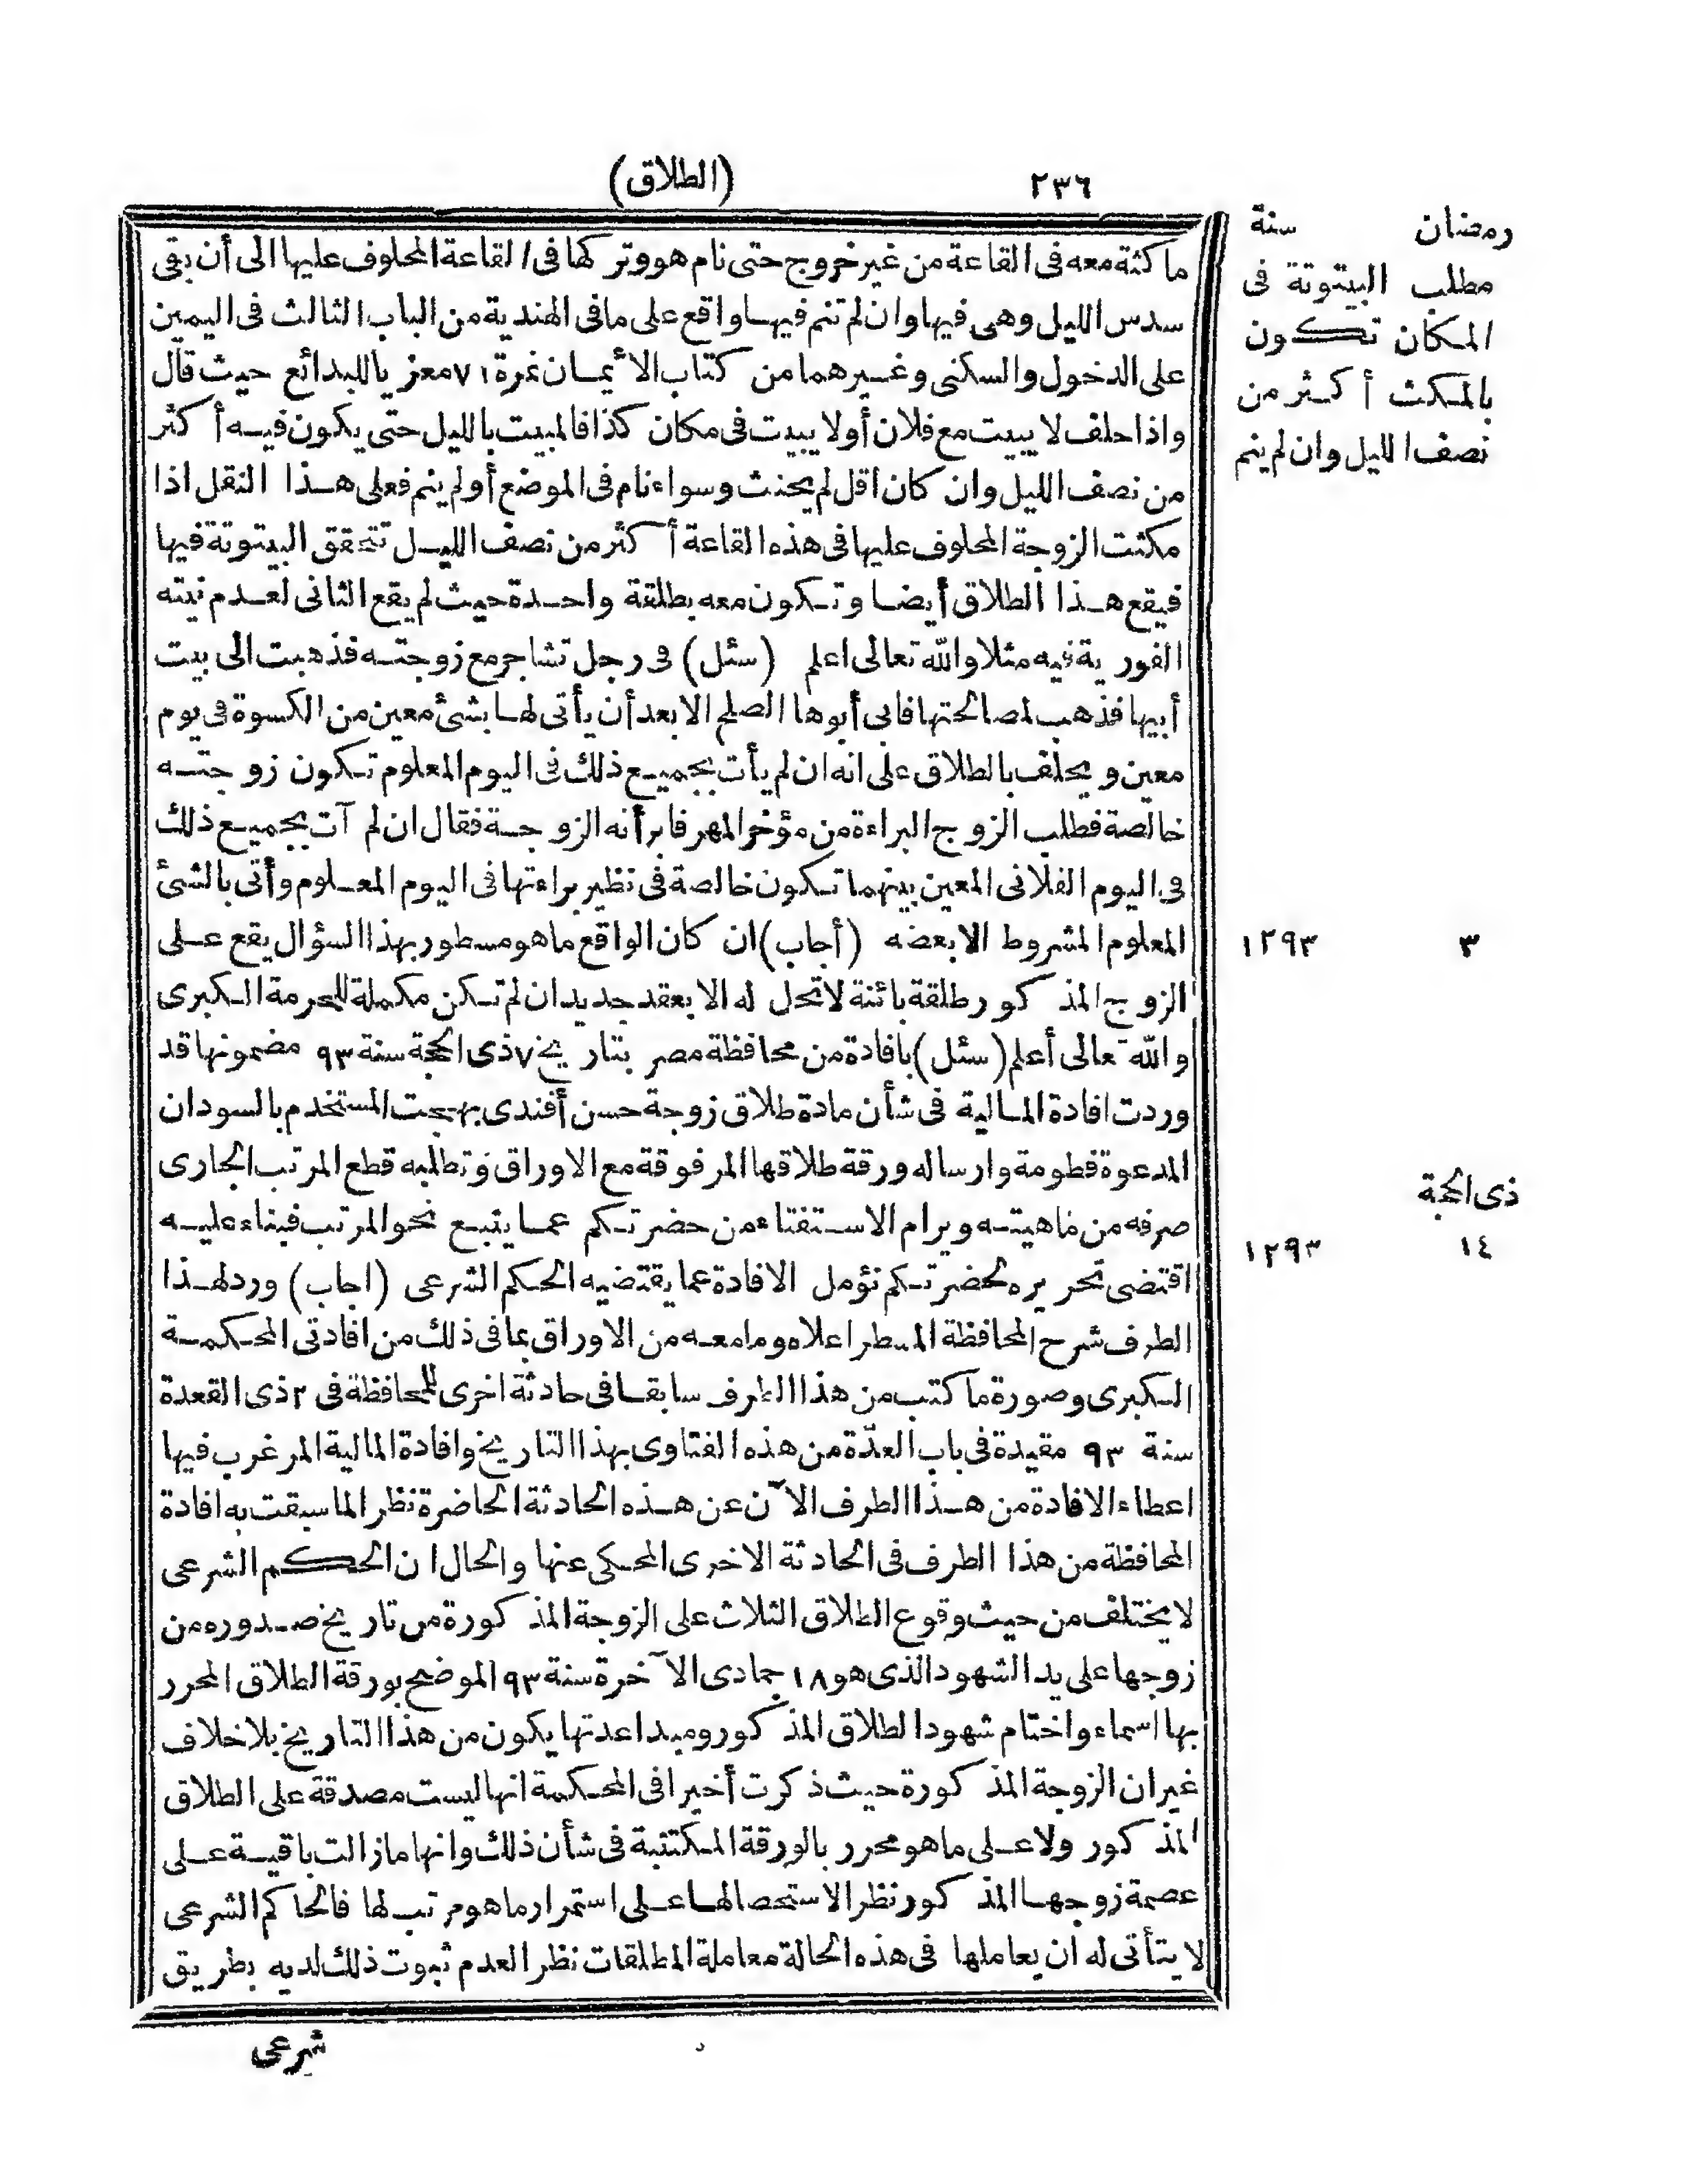 ٢٣٦
(الطلاق)
رمضان سنة
مطلب البيتوتة فى
المكان تكون
بالمكث أكثر من
نصف الليل وان لم ينم
ماكثة معه فى القاعة من غير خروج حتى نام هو وتركها فى القاعة المحلوف عليها الى أن بقى
سدس الليل وهى فيها وان لم تنم فيها واقع على ما فى الهندية من الباب الثالث فى اليمين
على الدخول والسكنى وغيرهما من كتاب الأيمان نمرة ٧١ معزيا للبدائع حيث قال
واذا حلف لا يبيت مع فلان أولا يبيت فى مكان كذا فالمبيت بالليل حتى يكون فيه أكثر
من نصف الليل وان كان اقل لم يحنث وسواء نام فى الموضع أولم ينم فعلى هذا النقل اذا
مكثت الزوجة المحلوف عليها فى هذه القاعة أكثر من نصف الليل تتحقق البيتوتة فيها
فيقع هذا الطلاق أيضا وتكون معه بطلقة واحدة حيث لم يقع الثانى لعدم نيته
الفورية فيه مثلا والله تعالى اعلم (سئل) فى رجل تشاجر مع زوجته فذهبت الى بيت
أبيها فذهب لمصالحتها فابى أبوها الصلح الا بعد أن يأتى لها بشئ معين من الكسوة فى يوم
معين ويحلف بالطلاق على انه ان لم يأت بجميع ذلك فى اليوم المعلوم تكون زوجته
خالصة فطلب الزوج البراءة من مؤخر المهر فابرأنه الزوجة فقال ان لم آت بجميع ذلك
فى اليوم الفلانى المعين بينهما تكون خالصة فى نظير براءتها فى اليوم المعلوم وأتى بالشئ
المعلوم المشروط الا بعضه (أجاب) ان كان الواقع ما هو مسطور بهذا السؤال يقع على
٣ ١٢٩٣
الزوج المذكور طلقة بائنة لا تحل له الا بعقد جديد ان لم تكن مكملة للحرمة الكبرى
والله تعالى أعلم (سئل) بافادة من محافظة مصر بتاريخ ٧ ذى الحجة سنة ٩٣ مضمونها قد
وردت افادة المالية فى شأن مادة طلاق زوجة حسن أفندى بهجت المستخدم بالسودان
المدعوة فطومة وارساله ورقة طلاقها المرفوقة مع الاوراق وتطلبه قطع المرتب الجارى
ذى الحجة
صرفه من ماهيته ويرام الاستفتاء من حضرتكم عما يتبع نحو المرتب فبناء عليه
١٤ ١٢٩٣
اقتضى تحريره لحضرتكم نؤمل الافادة عما يقتضيه الحكم الشرعى (اجاب) ورد لهذا
الطرف شرح المحافظة المسطر اعلاه وما معه من الاوراق بما فى ذلك من افادتى المحكمة
الكبرى وصورة ما كتب من هذا الطرف سابقا فى حادثة اخرى للمحافظة فى ٢ ذى القعدة
سنة ٩٣ مقيدة فى باب العدّة من هذه الفتاوى بهذا التاريخ وافادة المالية المرغرب فيها
اعطاء الافادة من هذا الطرف الآن عن هذه الحادثة الحاضرة نظرا لما سبقت به افادة
المحافظة من هذا الطرف فى الحادثة الاخرى المحكى عنها والحال ان الحكم الشرعى
لا يختلف من حيث وقوع الطلاق الثلاث على الزوجة المذكورة من تاريخ صدوره من
زوجها على يد الشهود الذى هو ١٨ جمادى الآخرة سنة ٩٣ الموضح بورقة الطلاق المحرر
بها اسماء واختام شهود الطلاق المذكور ومبدا عدتها يكون من هذا التاريخ بلا خلاف
غير ان الزوجة المذكورة حيث ذكرت أخيرا فى المحكمة انها ليست مصدقة على الطلاق
المذكور ولا على ما هو محرر بالورقة المكتتبة فى شأن ذلك وانها مازالت باقية على
عصمة زوجها المذكور نظرا لاستحصالها على استمرار ما هو مرتب لها فالحاكم الشرعى
لا يتأتى له ان يعاملها فى هذه الحالة معاملة المطلقات نظرا لعدم ثبوت ذلك لديه بطريق
شرعى